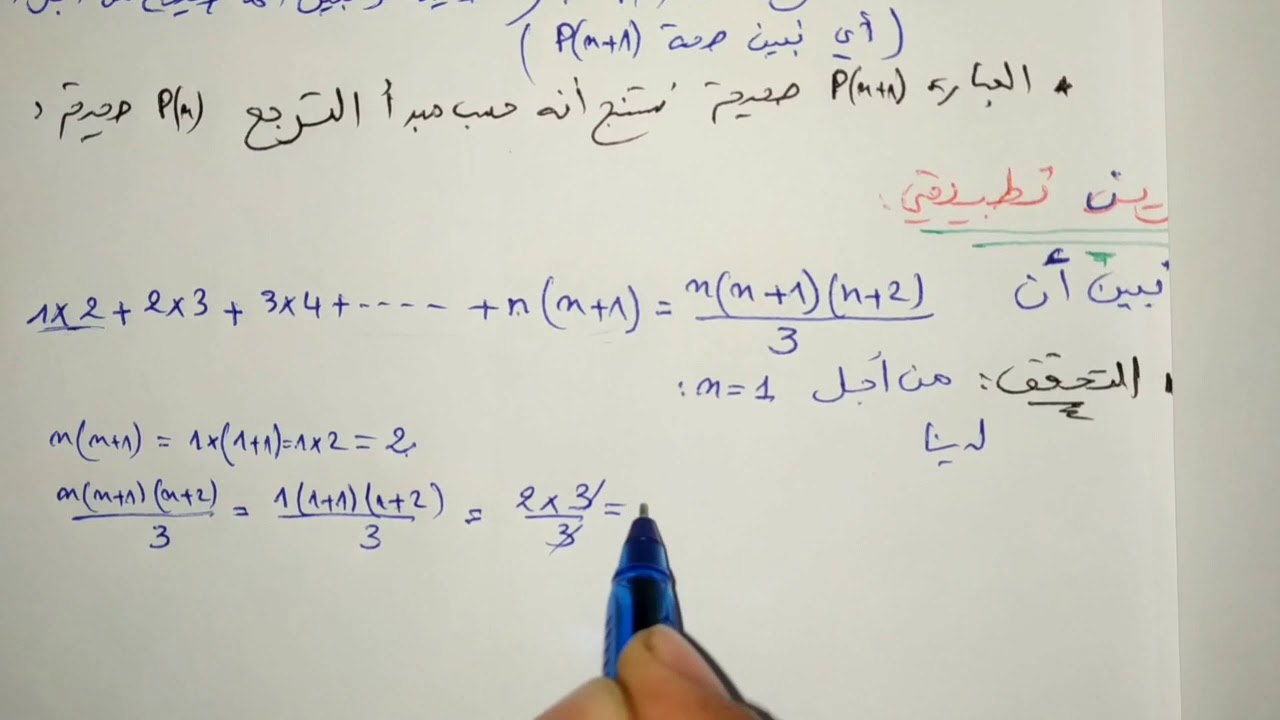 (أي نبين صحة P(n+1))
* العبارة P(n+1) صحيحة نستنتج أنه حسب مبدأ الترجع P(n) صحيحة
تطبيقي:
نبين أن 1×2 + 2×3 + 3×4 + ----- + n(n+1) = n(n+1)(n+2)/3
التحقق: من أجل n=1:
لدينا
n(n+1) = 1×(1+1)=1×2=2
n(n+1)(n+2)/3 = 1(1+1)(1+2)/3 = 2×3/3 =